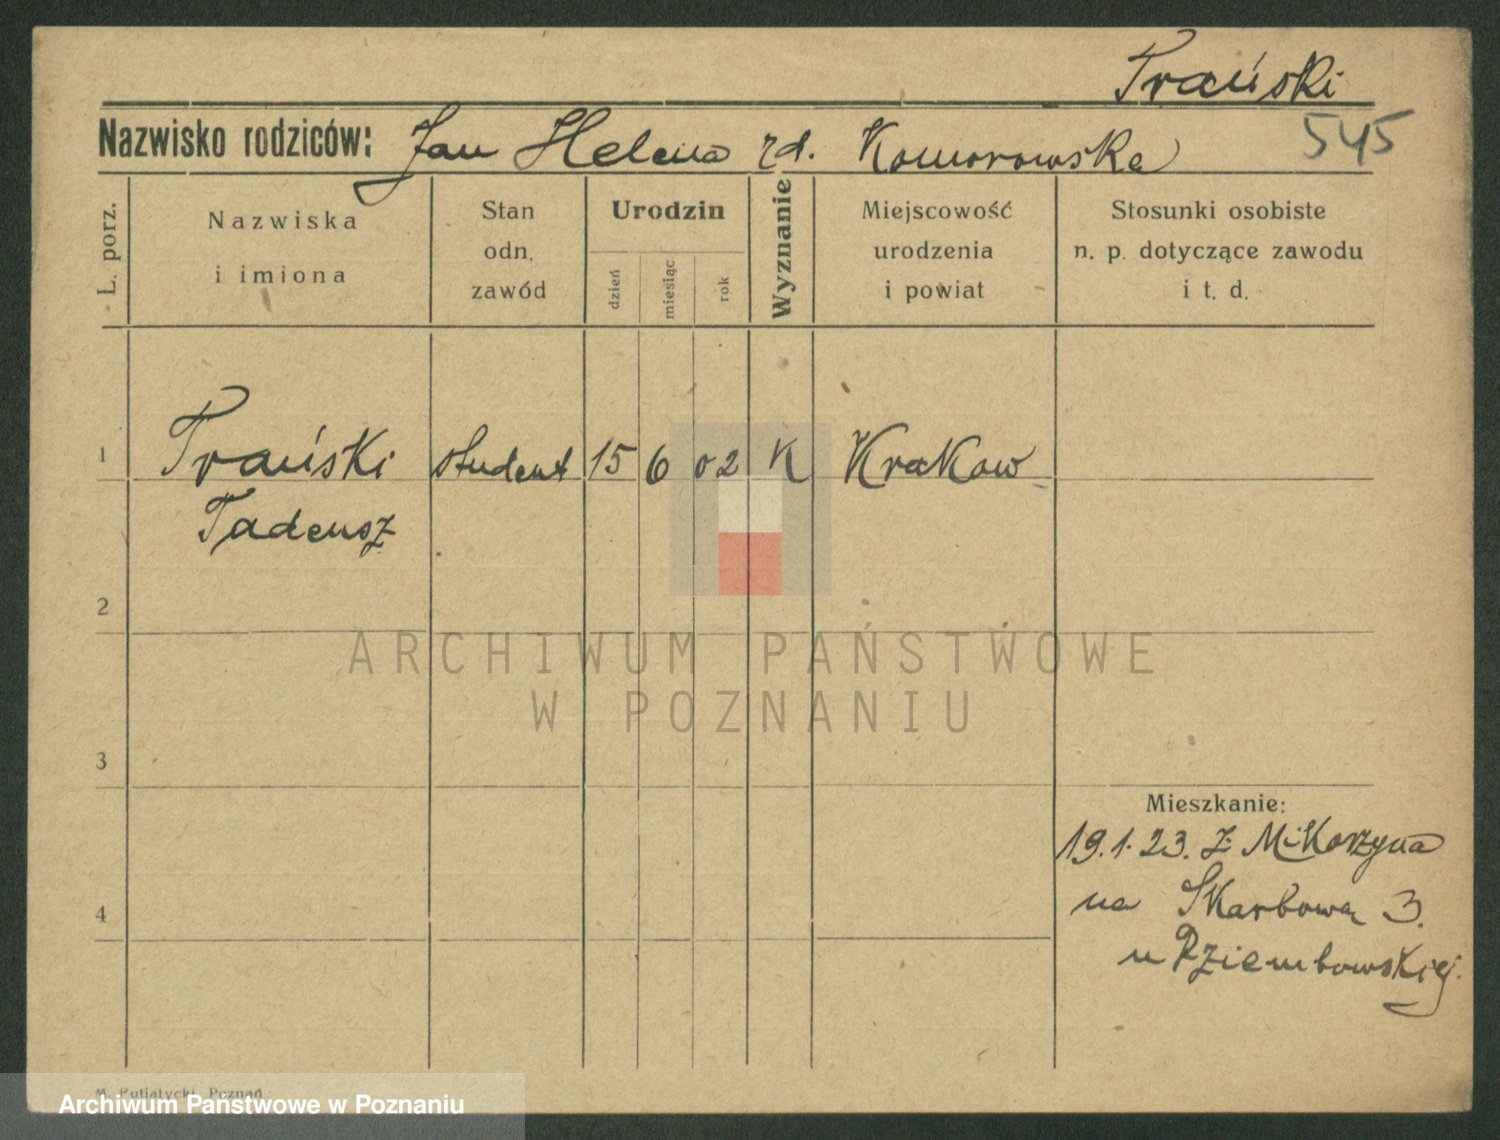 Trański
Nazwisko rodziców: Jan Helena zd. Komorowska 545
L. porz.
Nazwiska
i imiona
Stan
odn.
zawód
Urodzin
dzień
miesiąc
rok
Wyznanie
Miejscowość
urodzenia
i powiat
Stosunki osobiste
n. p. dotyczące zawodu
i t. d.
1 Trański student 15 6 02 K Krakow
Tadeusz
2
ARCHIWUM PAŃSTWOWE
W POZNANIU
3
Mieszkanie:
19.1.23. z Mikorzyna
na Skarbową 3.
4
u Dziembowskiej.
Poznań
Archiwum Państwowe w Poznaniu